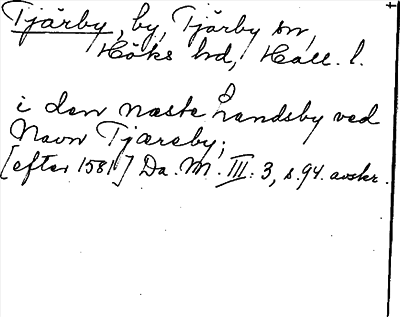 Tjärby, by, Tjärby sn,
Höks hd, Hall. l.
i den næste Landsby ved
Navn Tjæreby;
[efter 1581] Da. M. III. 3, s. 94. avskr.